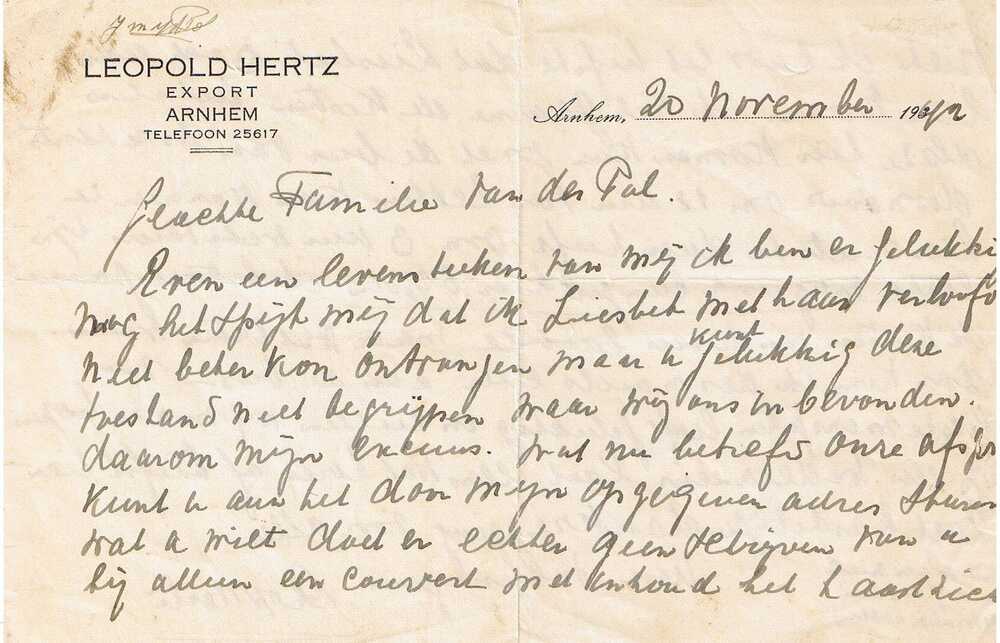 LEOPOLD HERTZ
EXPORT
ARNHEM
TELEFOON 25617
Arnhem, 20 November 1942
Geachte Familie van der Pol.
Even een levensteeken van mij ik ben er gelukki
nog het spijt mij dat ik Liesbet met haar verloofd
niet beter kon ontvangen maar u kunt gelukkig deze
toestand niet begrijpen waar wij ons in bevonden.
daarom mijn excuus. wat nu betrefd onze afspr
kunt u aan het door mijn opgegeven adres sturen
wat u wilt doet er echter geen schrijven van u
bij alleen een couvert met inhoud het